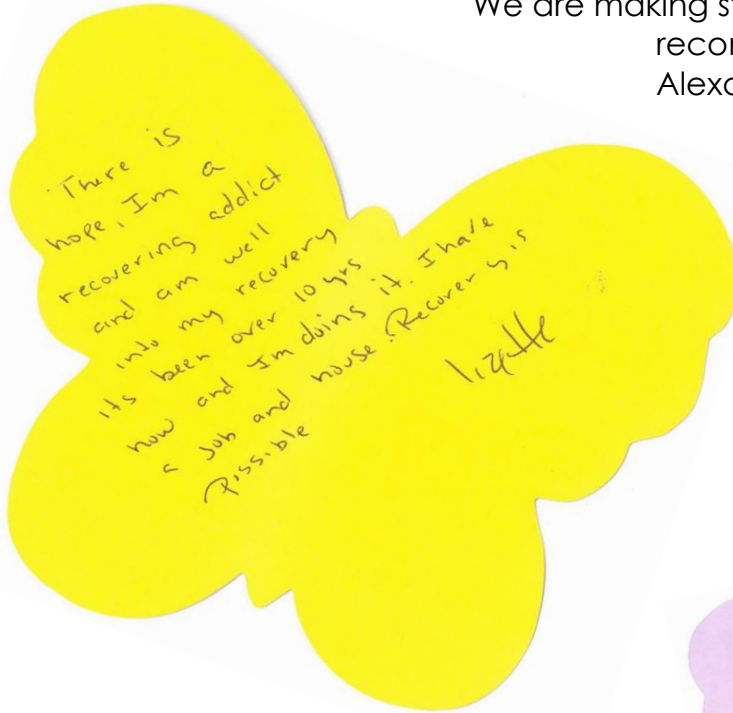 We are making st
recor
Alexa
There is
hope, Im a
recovering addict
and am well
into my recovery
its been over 10 yrs
now and Im doing it. I have
a Job and house. Recovery is
Possible
lizette